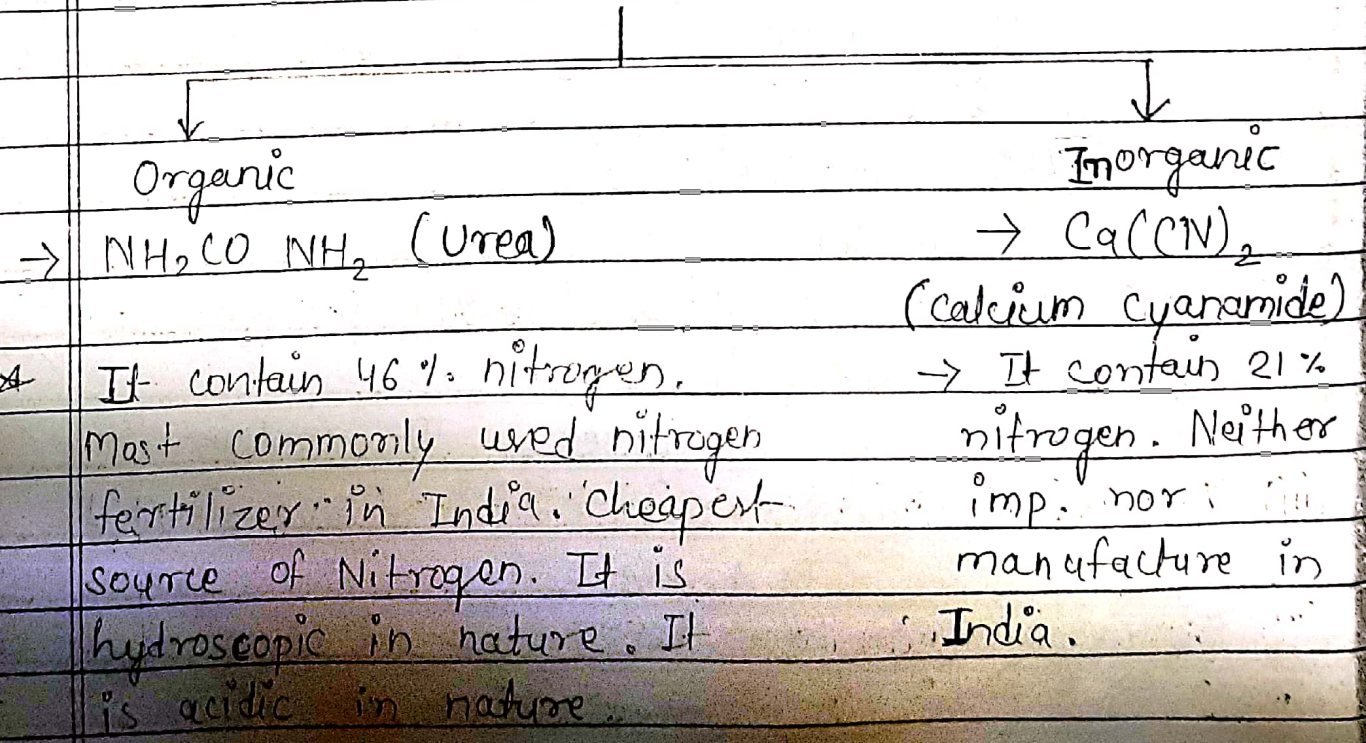 Organic
→ NH₂CO NH₂ (Urea)
* It contain 46 % nitrogen.
Most commonly used nitrogen
fertilizer in India. Cheapest
source of Nitrogen. It is
hydroscopic in nature. It
is acidic in nature.
Inorganic
→ Ca(CN)₂
(Calcium Cyanamide)
→ It contain 21 %
nitrogen. Neither
imp. nor
manufacture in
India.